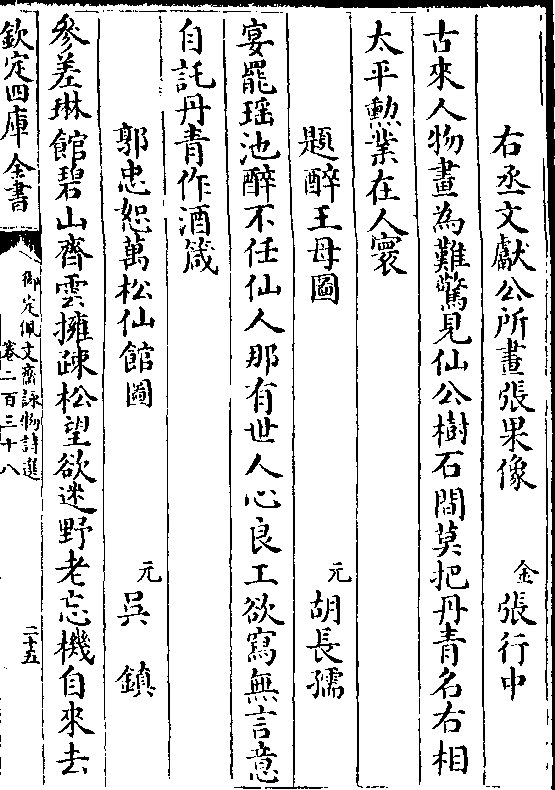 右丞文獻公所畫張果像 金 張行中
古來人物畫為難驚見仙公樹石間莫把丹青名右相
太平勲業在人寰
題醉王母圖 元 胡長孺
宴罷瑶池醉不任仙人那有世人心良工欲寫無言意
自託丹青作酒箴
郭忠恕萬松仙館圖 元 吳鎮
參差琳館碧山齊雲擁疎松望欲迷野老忘機自來去
欽定四庫全書
御定佩文齋詠物詩選
卷二百三十八
二十五